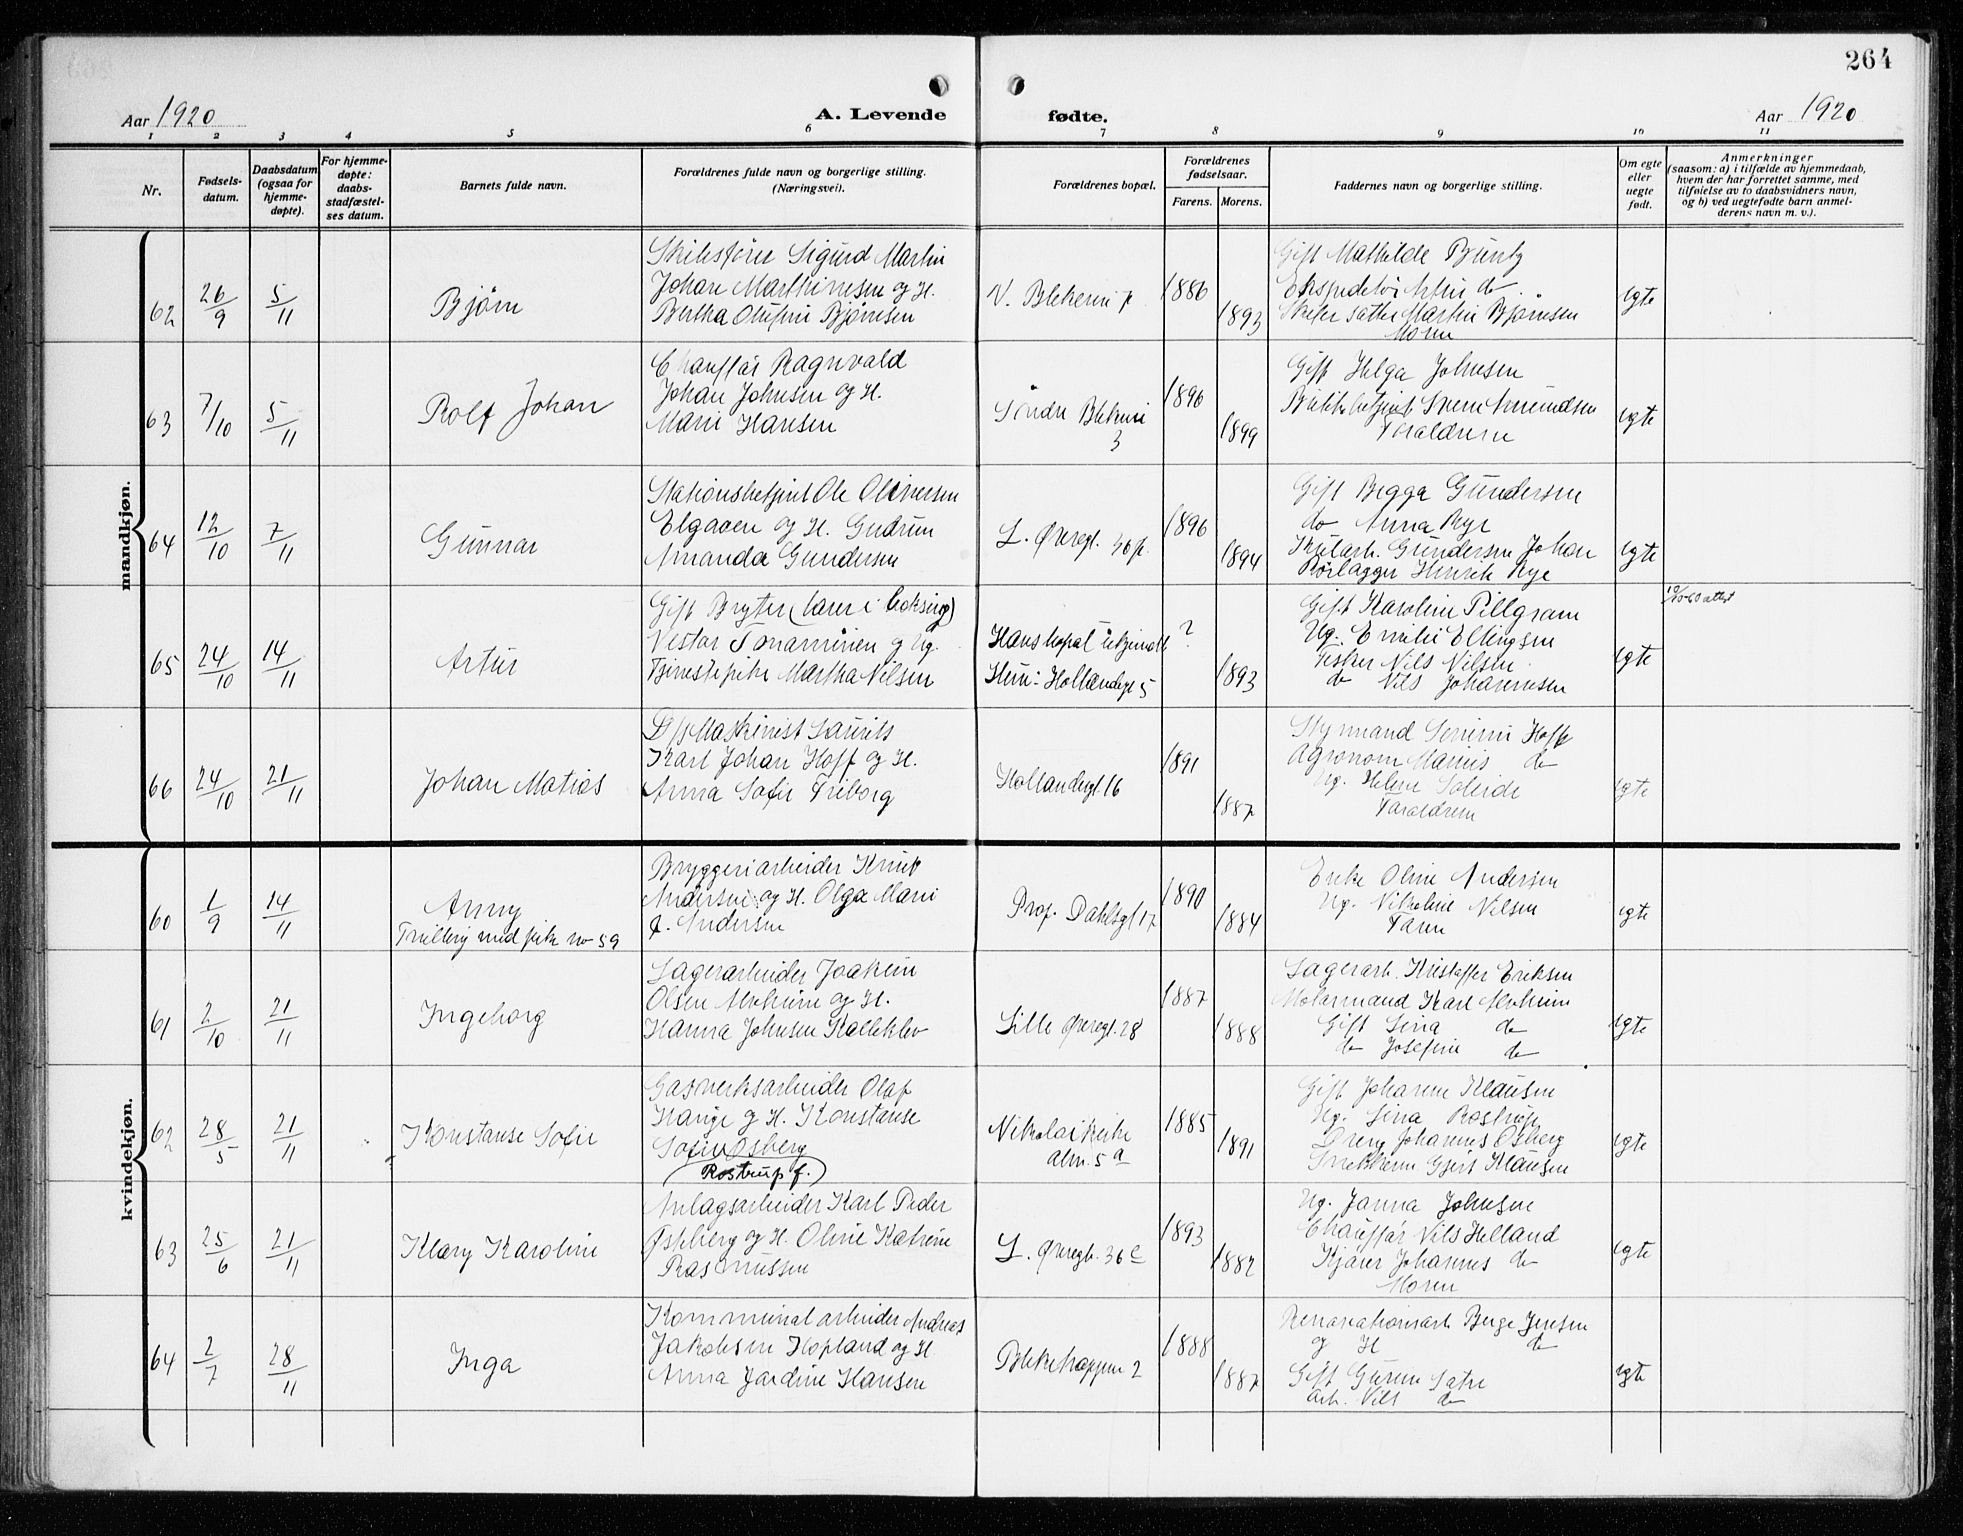 264
Aar 1920
A. Levende
fødte.
Aar 1920
1 2 3 4 5 6 7 8 9 10 11
Nr.
Fødsels-
datum.
Daabsdatum
(ogsaa for
hjemme-
døpte).
For hjemme-
døpte:
daabs-
stadfæstel-
ses datum.
Barnets fulde navn.
Forældrenes fulde navn og borgerlige stilling.
(Næringsvei).
Forældrenes bopæl.
Forældrenes
fødselsaar.
Farens.
Morens.
Faddernes navn og borgerlige stilling.
Om egte
eller
uegte
født.
Anmerkninger
(saasom: a) i tilfælde av hjemmedaab,
hvem der har forrettet samme, med
tilføielse av to daabsvidners navn,
og b) ved uegtefødte barn anmel-
derens navn m. v.).
mandkjøn.
62 26/9 5/11
Bjørn
Sigurd Martin
Johan Marthinesen og H.
Bertha Olufine Bjørnsen
1886
1893
Gift Mathilde
do
Martin Bjørnsen
Moren
egte
63 7/10 5/11
Rolf Johan
Chauffør Ragnvald
Johan Johnsen og H.
Marie Hansen
Søndre Blekevei
3
1896
1899
Gift Helga Johnsen
Forældrene
egte
64 12/10 7/11
Gunnar
Stationsbetjent Ole Oliversen
Elgaaen og H. Gudrun
Amanda Gundersen
L. Øvregt. 36
1896
1894
Gift Begga Gundersen
do Anna Rye
Gundersen Johan
Rørlægger Henrik Rye
egte
65 24/10 14/11
Artur
Gift Bryter
og Ug.
Tjenestepike Martha Nilsen
Hans bopæl ubekjendt
Hun: Hollendergt 5
?
1893
Gift Karoline Pillgram
Ug. Emilie Ellingsen
Fisker Nils Nilsen
do Nils Johannesen
egte
66 24/10 21/11
Johan Matias
D/S Maskinist Laurits
Karl Johan Hoff og H.
Anna Sofie Friborg
Hollendergt 16
1891
1887
Styrmand Hoff
Agronom Marius do
Ug. Helene
Forældrene
egte
kvindekjøn.
60 1/9 14/11
Anny
Tvilling med pike no 59
Bryggeriarbeider Knut
Andersen og H. Olga Marie
f. Andersen
Prof. Dahlsgt 17
1890
1884
Enke Oline Andersen
Ug. Nikoline Nilsen
Faren
egte
61 2/10 21/11
Ingeborg
Lagerarbeider Joakim
Olsen Alvheim og H.
Hanna Johnsen Kalleklev
Lille Øvregt. 28
1887
1888
Lagerarb. Kristoffer Eriksen
Motormand Karl Alvheim
Gift Lina do
do Josefine do
egte
62 28/5 21/11
Konstanse Sofie
Gasverksarbeider Olaf
Hauge og H. Konstanse
Sofie Osberg
(Rostrup f.)
Nikolaikirke
alm. 5 a
1885
1891
Gift Johanne Klausen
Ug. Lina Rostrup
Dreng Johannes Osberg
Gjert Klausen
egte
63 25/6 21/11
Klary Karoline
Anlagsarbeider Karl Peder
og H. Oline Katrine
Rasmussen
L. Øvregt. 36 c
1893
1882
Ug. Janna Johnsen
Chauffør Nils Helland
Kjører Johannes do
Moren
egte
64 2/7 28/11
Inga
Kommunalarbeider Andreas
Jakobsen Hopland og H.
Anna Jardine Hansen
2
1888
1887
Renovationsarb Berge Jensen
og H do
Gift Guren Sætre
Arb. Nils do
egte